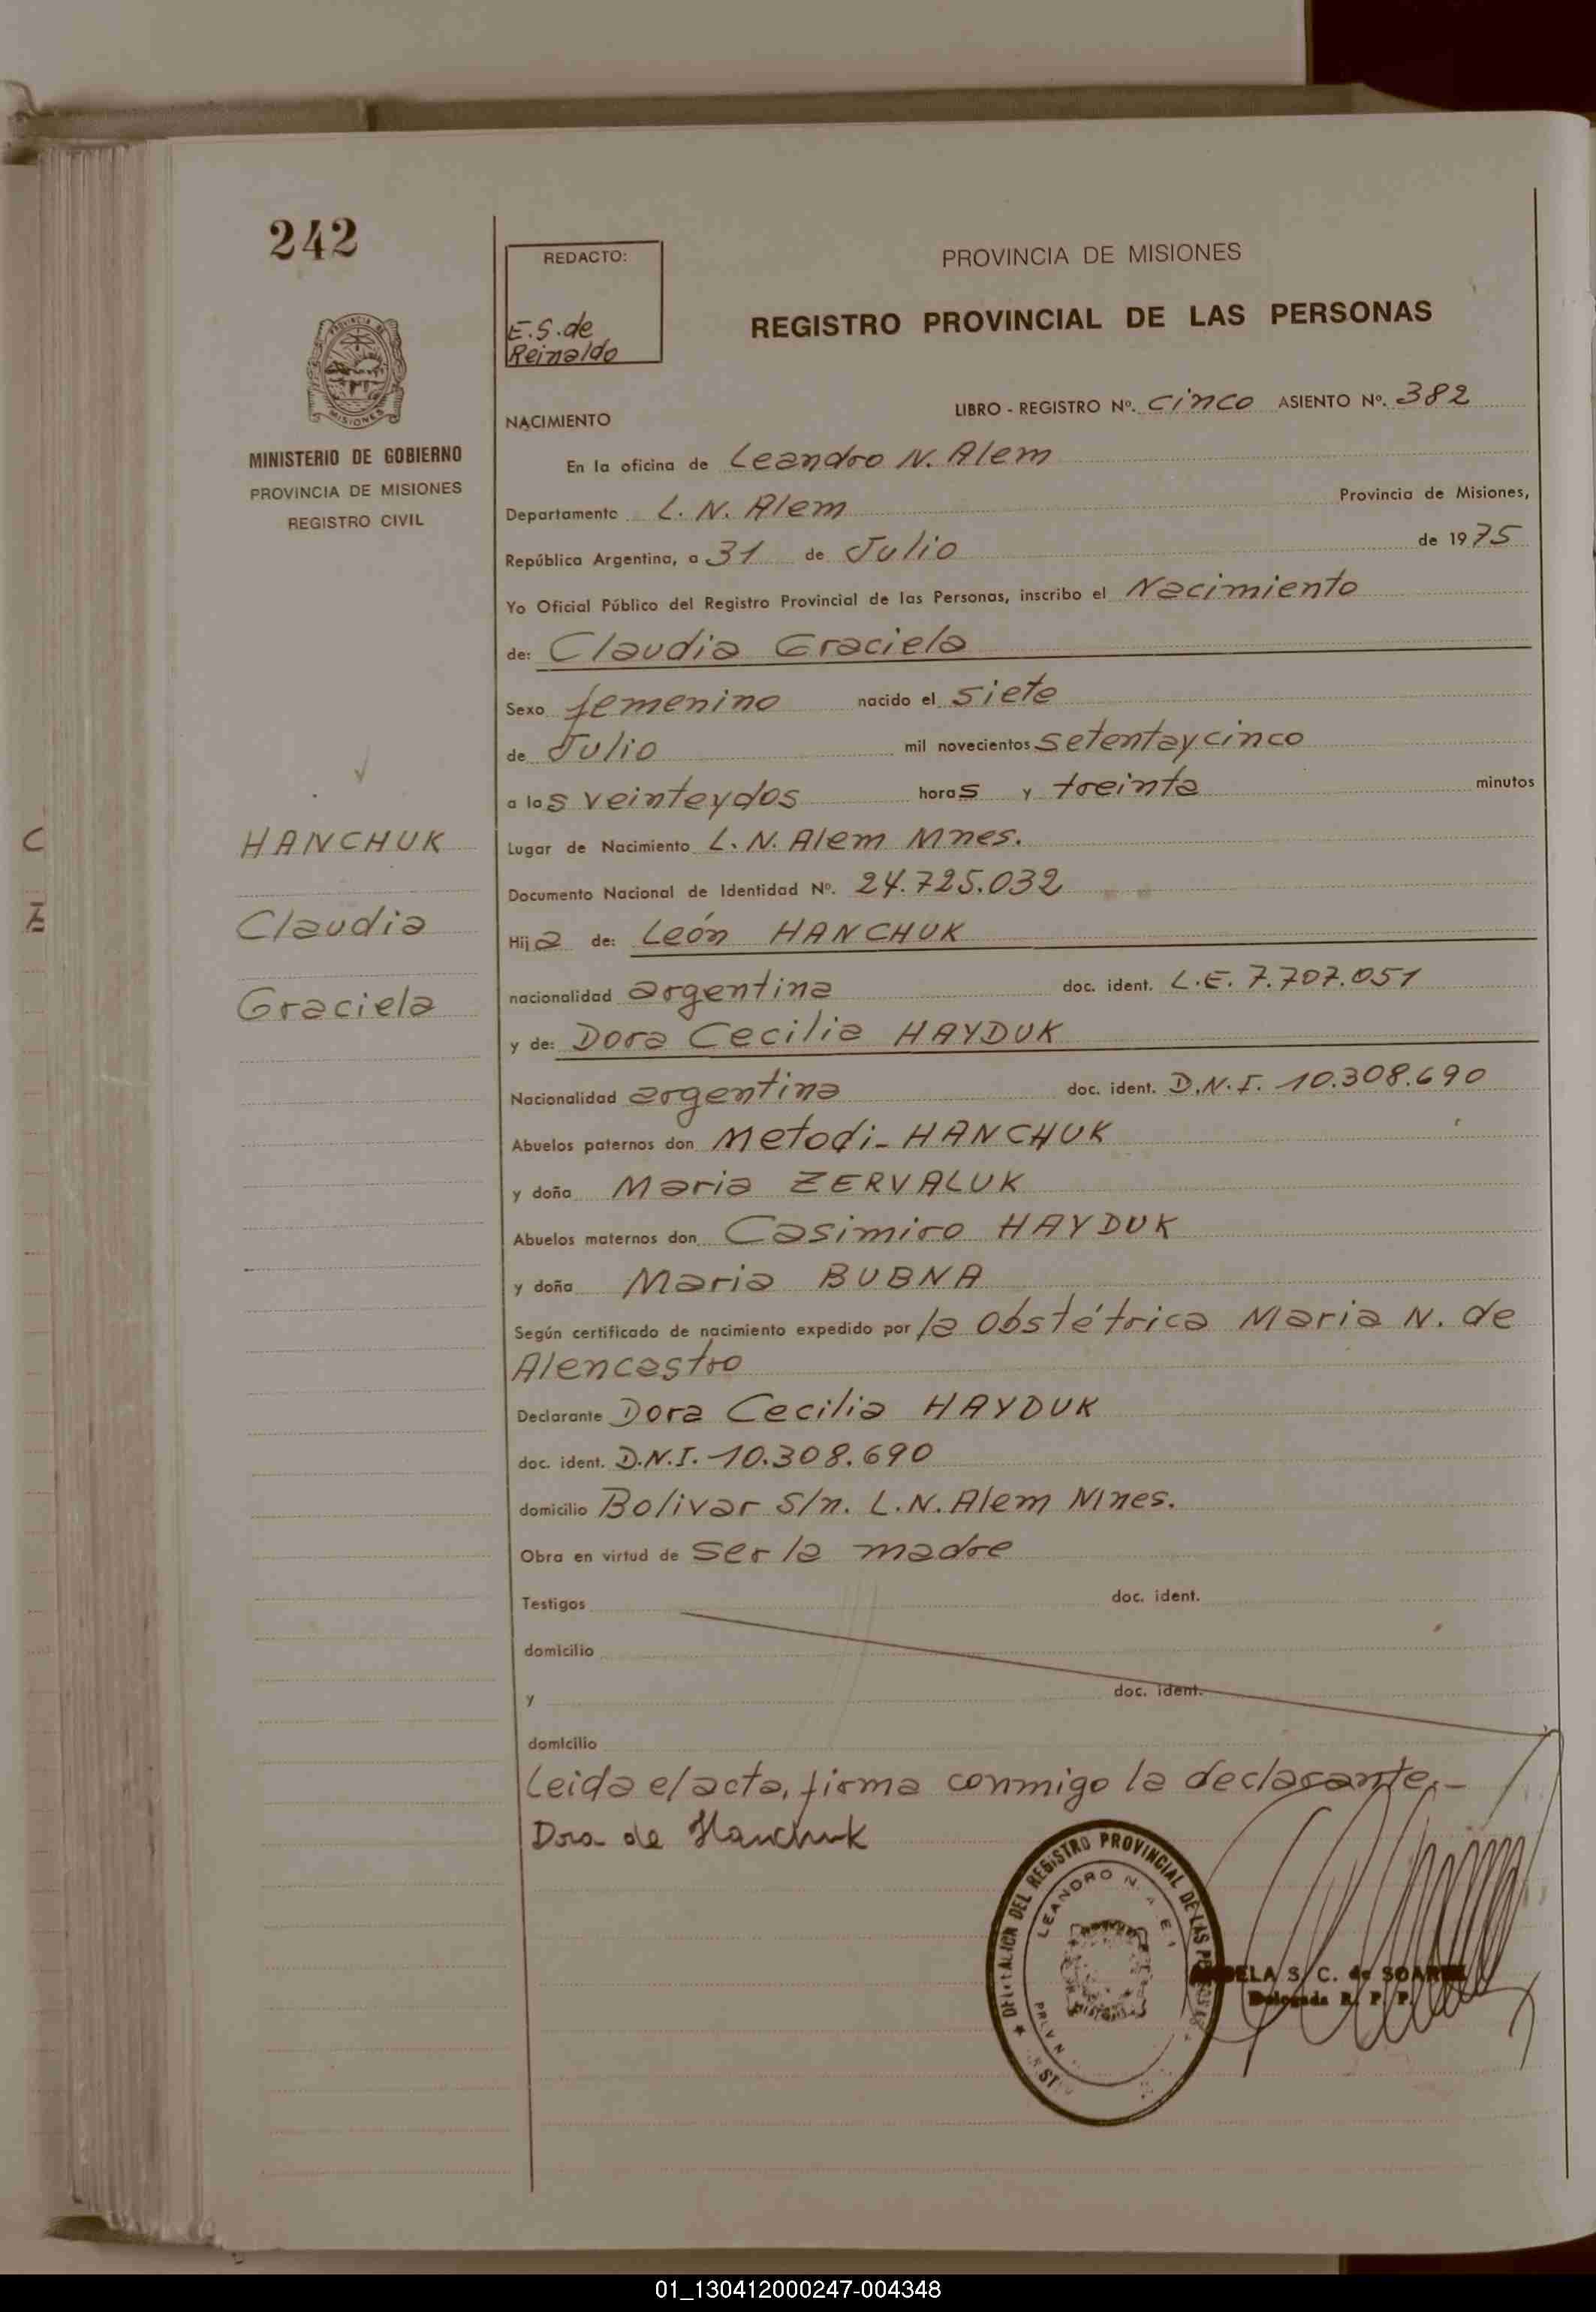 242
PROVINCIA DE
MISIONES
MINISTERIO DE GOBIERNO
PROVINCIA DE MISIONES
REGISTRO CIVIL
HANCHUK
Claudia
Graciela
REDACTO:
E.S. de
Reinaldo
PROVINCIA DE MISIONES
REGISTRO PROVINCIAL DE LAS PERSONAS
NACIMIENTO
LIBRO - REGISTRO Nº. cinco ASIENTO Nº. 382
En la oficina de Leandro N. Alem
Departamento L. N. Alem Provincia de Misiones,
República Argentina, a 31 de Julio de 1975
Yo Oficial Público del Registro Provincial de las Personas, inscribo el Nacimiento
de: Claudia Graciela
Sexo femenino nacido el siete
de Julio mil novecientos setentaycinco
a las veinteydos horas y treinta minutos
Lugar de Nacimiento L. N. Alem Mnes.
Documento Nacional de Identidad Nº. 24.725.032
Hija de: León HANCHUK
nacionalidad argentina doc. ident. L.E. 7.707.051
y de: Dora Cecilia HAYDUK
Nacionalidad argentina doc. ident. D.N.I. 10.308.690
Abuelos paternos don Metodi- HANCHUK
y doña Maria ZERVALUK
Abuelos maternos don Casimiro HAYDUK
y doña Maria BUBNA
Según certificado de nacimiento expedido por la Obstétrica Maria N. de
Alencastro
Declarante Dora Cecilia HAYDUK
doc. ident. D.N.I. 10.308.690
domicilio Bolivar s/n. L.N. Alem Mnes.
Obra en virtud de ser la madre
Testigos doc. ident.
domicilio
y doc. ident.
domicilio
Leida el acta, firma conmigo la declarante.-
Dora de Hanchuk
DEL REGISTRO PROVINCIAL DE LAS
LEANDRO N.
S. C. de
Delegada R. P. P.
01_130412000247-004348